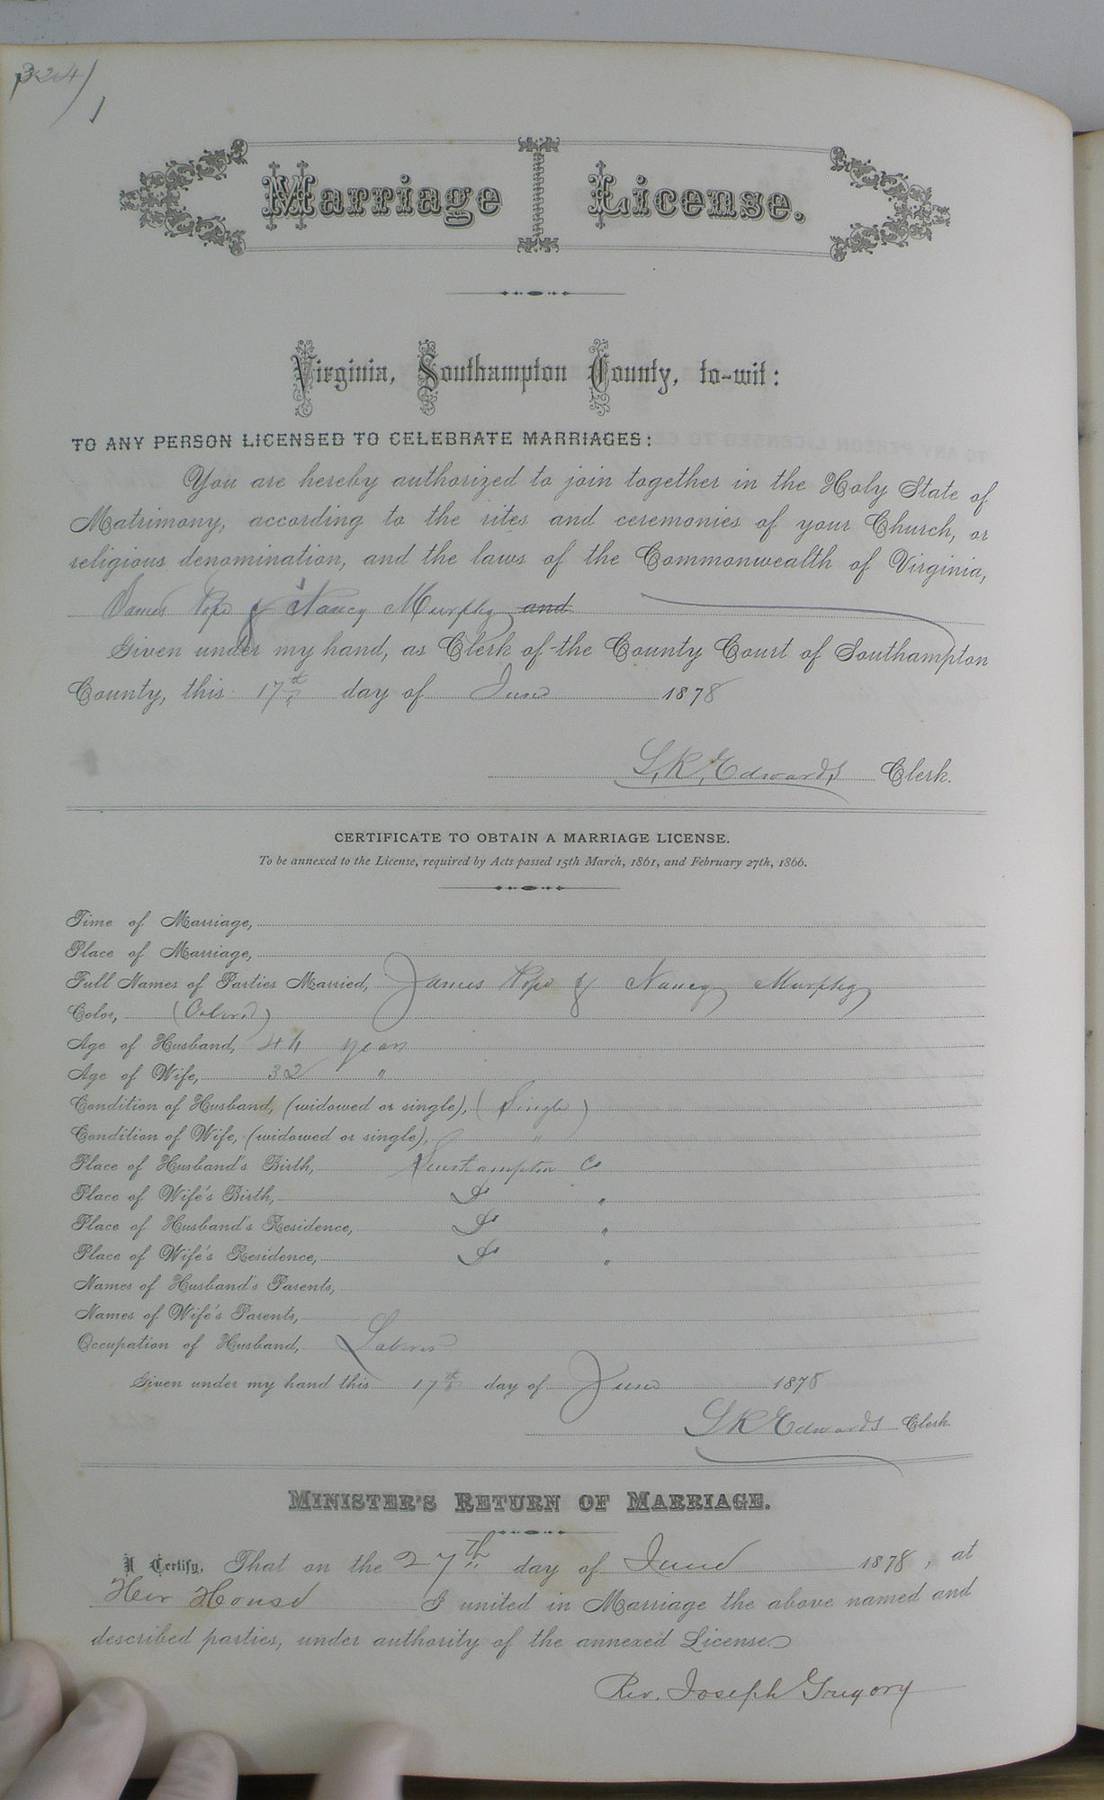 324
1
Marriage License.
Virginia, Southampton County, to-wit:
TO ANY PERSON LICENSED TO CELEBRATE MARRIAGES:
You are hereby authorized to join together in the Holy State of
Matrimony, according to the rites and ceremonies of your Church, or
religious denomination, and the laws of the Commonwealth of Virginia,
James Pope & Nancy Murphy and
Given under my hand, as Clerk of the County Court of Southampton
County, this 17th day of June 1878
L. R. Edwards, Clerk.
CERTIFICATE TO OBTAIN A MARRIAGE LICENSE.
To be annexed to the License, required by Acts passed 15th March, 1861, and February 27th, 1866.
Time of Marriage,
Place of Marriage,
Full Names of Parties Married, James Pope & Nancy Murphy
Color, (Colored)
Age of Husband, 44 years
Age of Wife, 32 "
Condition of Husband, (widowed or single), (Single)
Condition of Wife, (widowed or single), "
Place of Husband's Birth, Southampton Co
Place of Wife's Birth, Do "
Place of Husband's Residence, Do "
Place of Wife's Residence, Do "
Names of Husband's Parents,
Names of Wife's Parents,
Occupation of Husband, Laborer
Given under my hand this 17th day of June 1878
L R Edwards Clerk.
MINISTER'S RETURN OF MARRIAGE.
I Certify, That on the 27th day of June 1878, at
Her House I united in Marriage the above named and
described parties, under authority of the annexed License.
Rev. Joseph Gregory